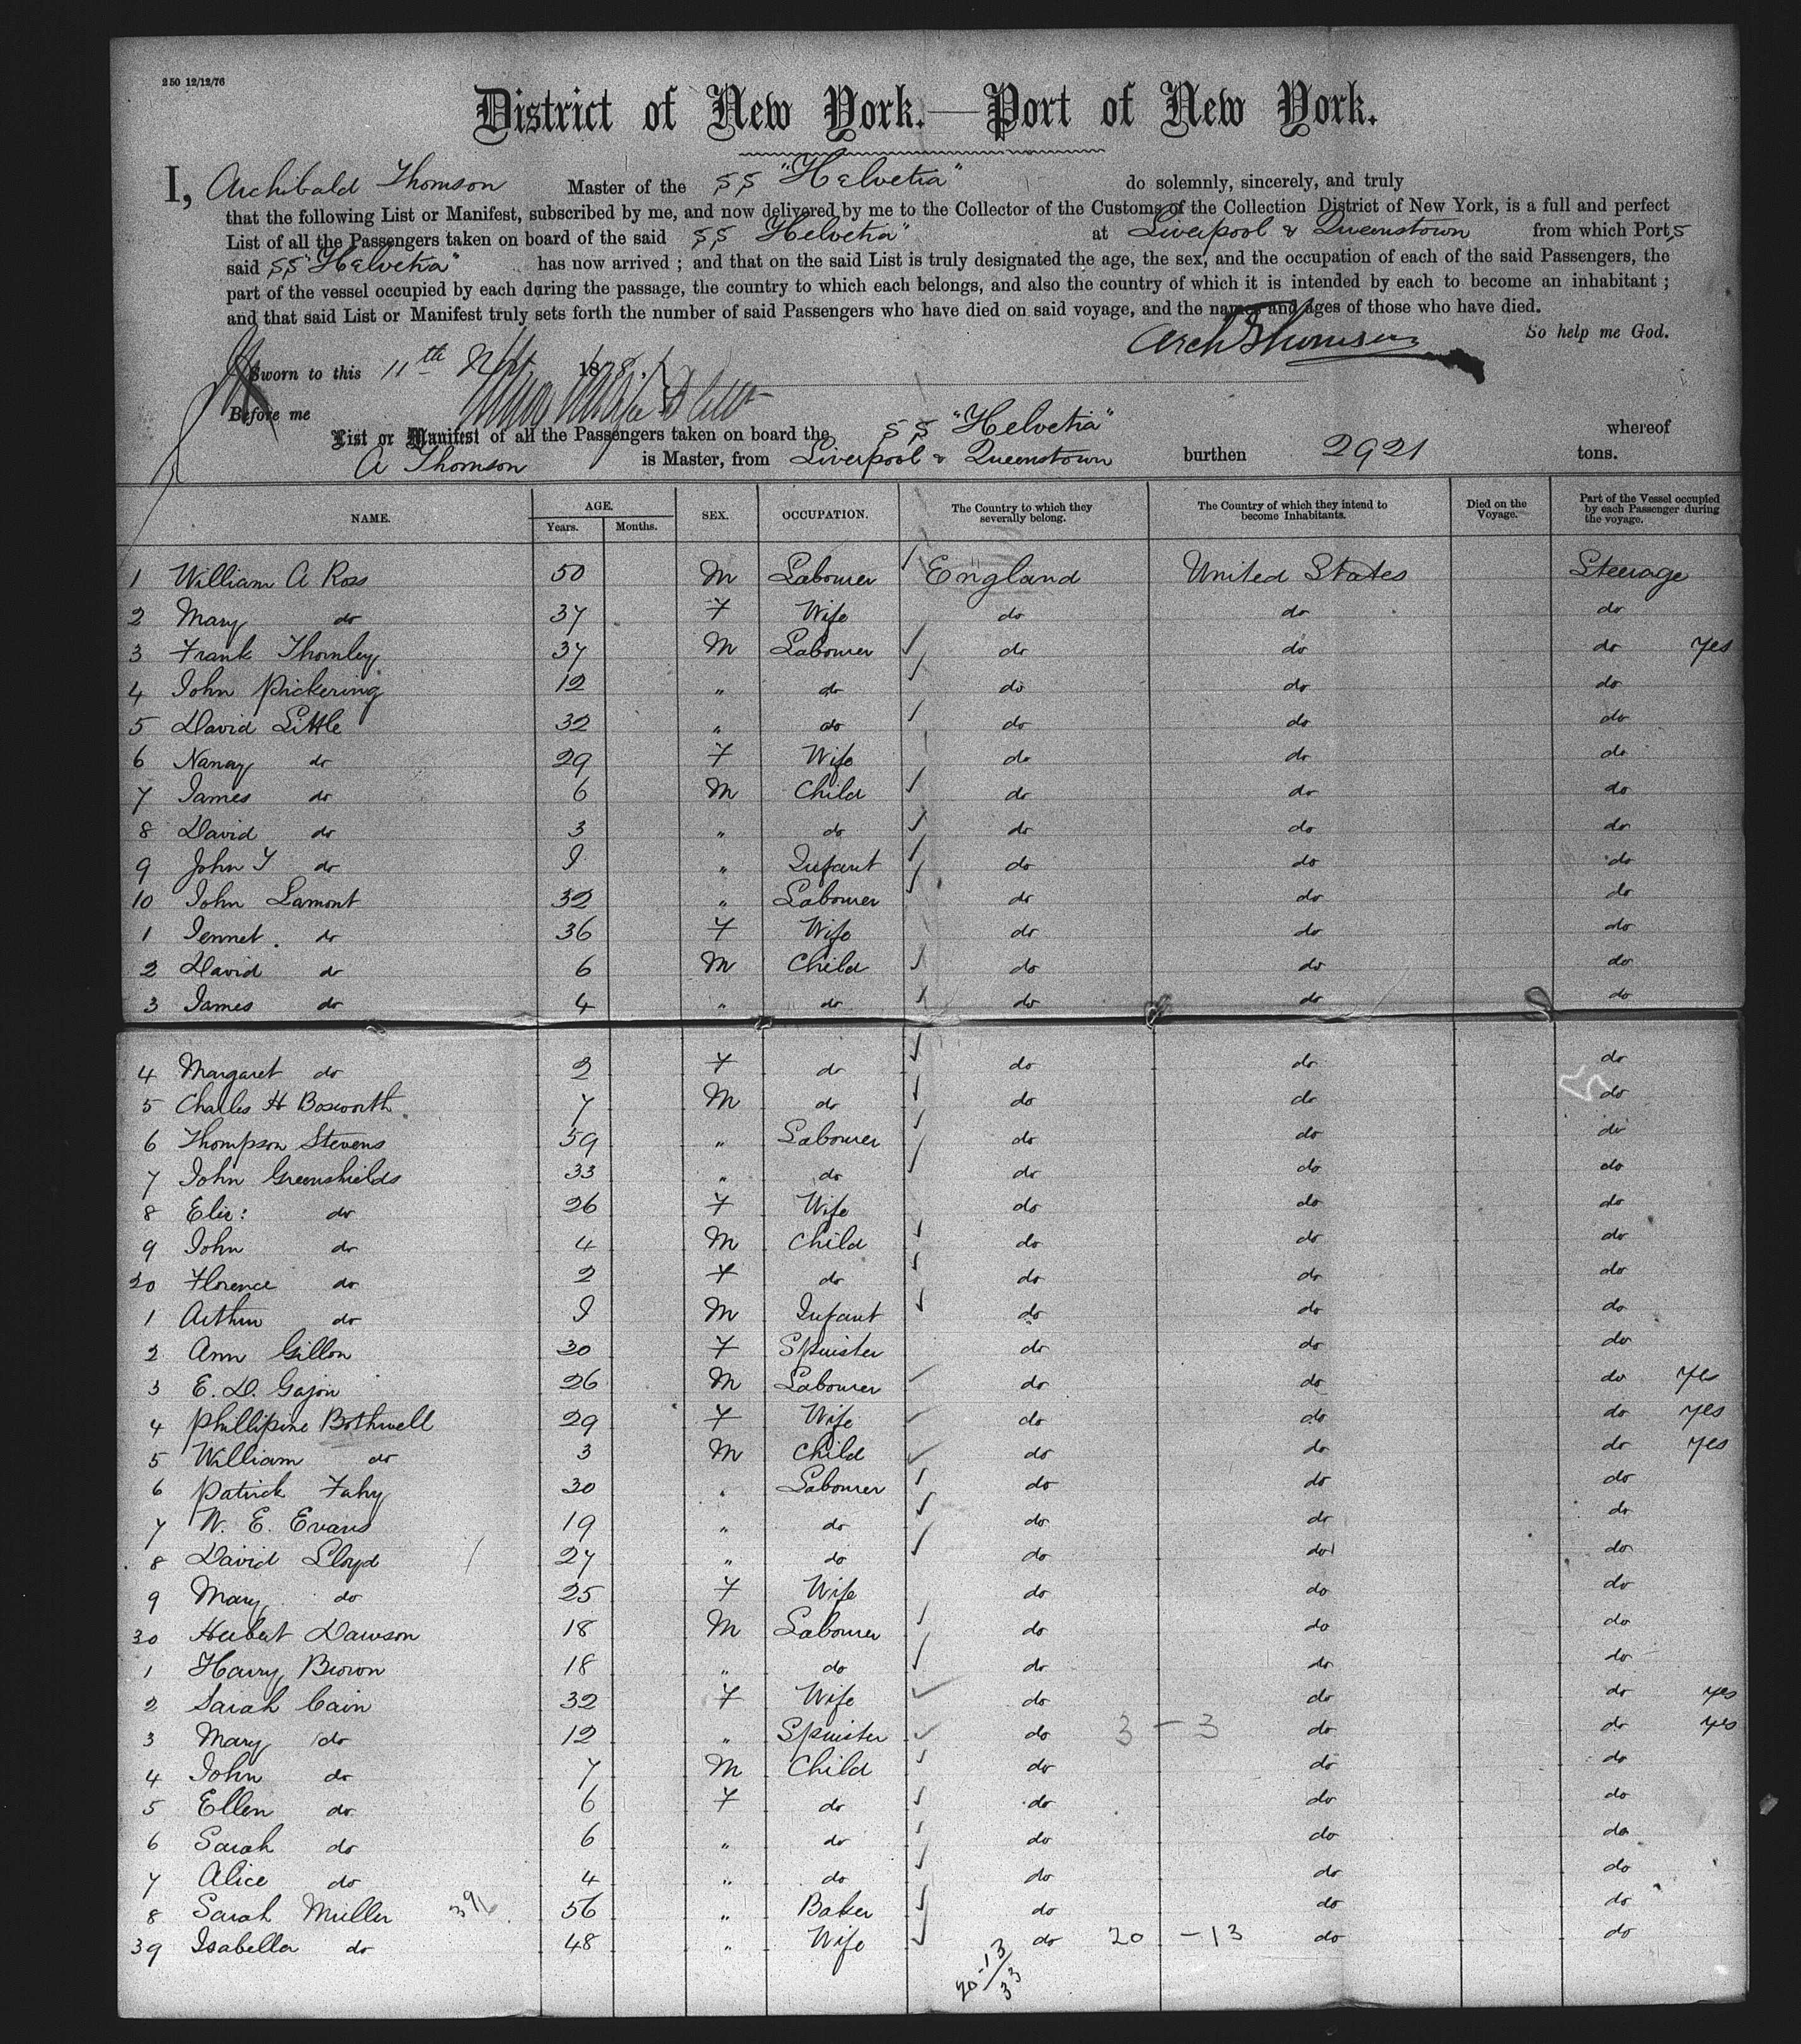 250 12/12/76
District of New York.—Port of New York.
I, Archibald Thomson Master of the SS "Helvetia" do solemnly, sincerely, and truly
that the following List or Manifest, subscribed by me, and now delivered by me to the Collector of the Customs of the Collection District of New York, is a full and perfect
List of all the Passengers taken on board of the said SS Helvetia" at Liverpool & Queenstown from which Port,s
said SS "Helvetia" has now arrived ; and that on the said List is truly designated the age, the sex, and the occupation of each of the said Passengers, the
part of the vessel occupied by each during the passage, the country to which each belongs, and also the country of which it is intended by each to become an inhabitant ;
and that said List or Manifest truly sets forth the number of said Passengers who have died on said voyage, and the names and ages of those who have died.
Arch Thomson So help me God.
Sworn to this 11th 188
Before me
List or Manifest of all the Passengers taken on board the SS "Helvetia" whereof
A Thomson is Master, from Liverpool & Queenstown burthen 2921 tons.
NAME. AGE. Years. Months. SEX. OCCUPATION. The Country to which they severally belong. The Country of which they intend to become Inhabitants. Died on the Voyage. Part of the Vessel occupied by each Passenger during the voyage.
1 William A Ross 50 M Labourer England United States Steerage
2 Mary do 37 F Wife do do do
3 Frank Thornley 37 M Labourer do do do Yes
4 John Pickering 12 " do do do do
5 David Little 32 " do do do do
6 Nancy do 29 F Wife do do do
7 James do 6 M Child do do do
8 David do 3 " do do do do
9 John T do I " Infant do do do
10 John Lamont 32 " Labourer do do do
1 Jennet do 36 F Wife do do do
2 David do 6 M Child do do do
3 James do 4 " do do do do
4 Margaret do 2 F do do do do
5 Charles H Bosworth 7 M do do do do
6 Thompson Stevens 59 " Labourer do do do
7 John Greenshields 33 " do do do do
8 Eliz: do 26 F Wife do do do
9 John do 4 M Child do do do
20 Florence do 2 F do do do do
1 Arthur do I M Infant do do do
2 Ann Gillon 30 F Spinster do do do
3 E. D. Gajon 26 M Labourer do do do Yes
4 Phillipine Bothwell 29 F Wife do do do Yes
5 William do 3 M Child do do do Yes
6 Patrick Fahy 30 " Labourer do do do
7 W. E. Evans 19 " do do do do
8 David Lloyd 27 " do do do do
9 Mary do 25 F Wife do do do
30 Herbert Dawson 18 M Labourer do do do
1 Harry Brown 18 " do do do do
2 Sarah Cain 32 F Wife do do do Yes
3 Mary do 12 " Spinster do 3 - 3 do do Yes
4 John do 7 M Child do do do
5 Ellen do 6 F do do do do
6 Sarah do 6 " do do do do
7 Alice do 4 " do do do do
8 Sarah Muller 56 " Baker do do do
39 Isabella do 48 " Wife do 20 - 13 do do
20-13/33